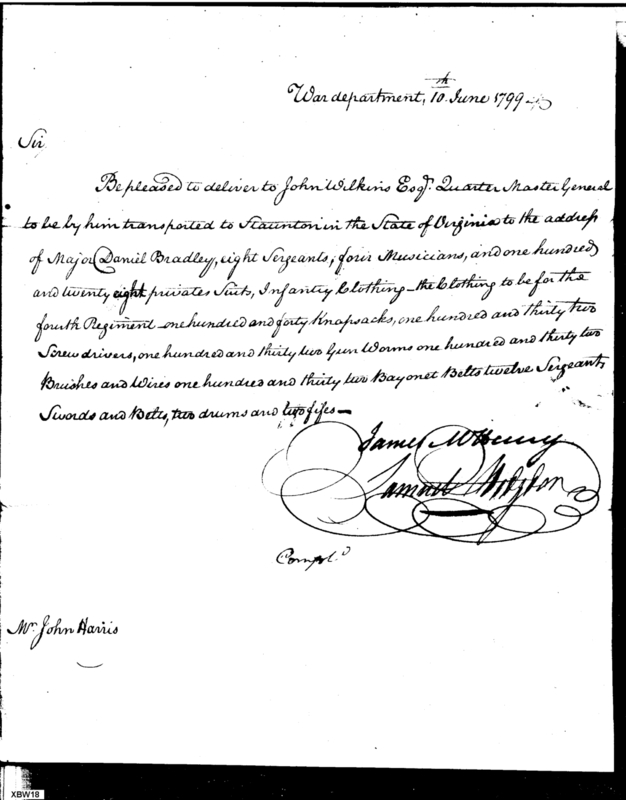 War department, 10th June 1799
Sir
Be pleased to deliver to John Wilkins Esqr. Quarter Master General
to be by him transported to Staunton in the State of Virginia to the address
of Major Daniel Bradley, eight Sergeants, four Musicians, and one hundred
and twenty eight privates Suits, Infantry Clothing — the Clothing to be for the
fourth Regiment — one hundred and forty Knapsacks, one hundred and thirty two
Screw drivers, one hundred and thirty two Gun Worms one hundred and thirty two
Brushes and Wires one hundred and thirty two Bayonet Belts twelve Sergeants
Swords and Belts, two drums and two fifes —
James McHenry
Samuel Hodgdon
Compd.
Mr. John Harris
XBW18